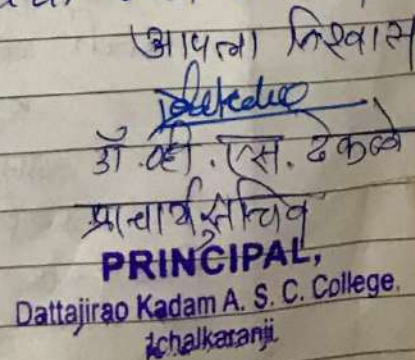 आपला विश्वास
डॉ. व्ही. एस. ढेकळे
प्राचार्य सचिव
PRINCIPAL,
Dattajirao Kadam A. S. C. College,
Ichalkaranji.